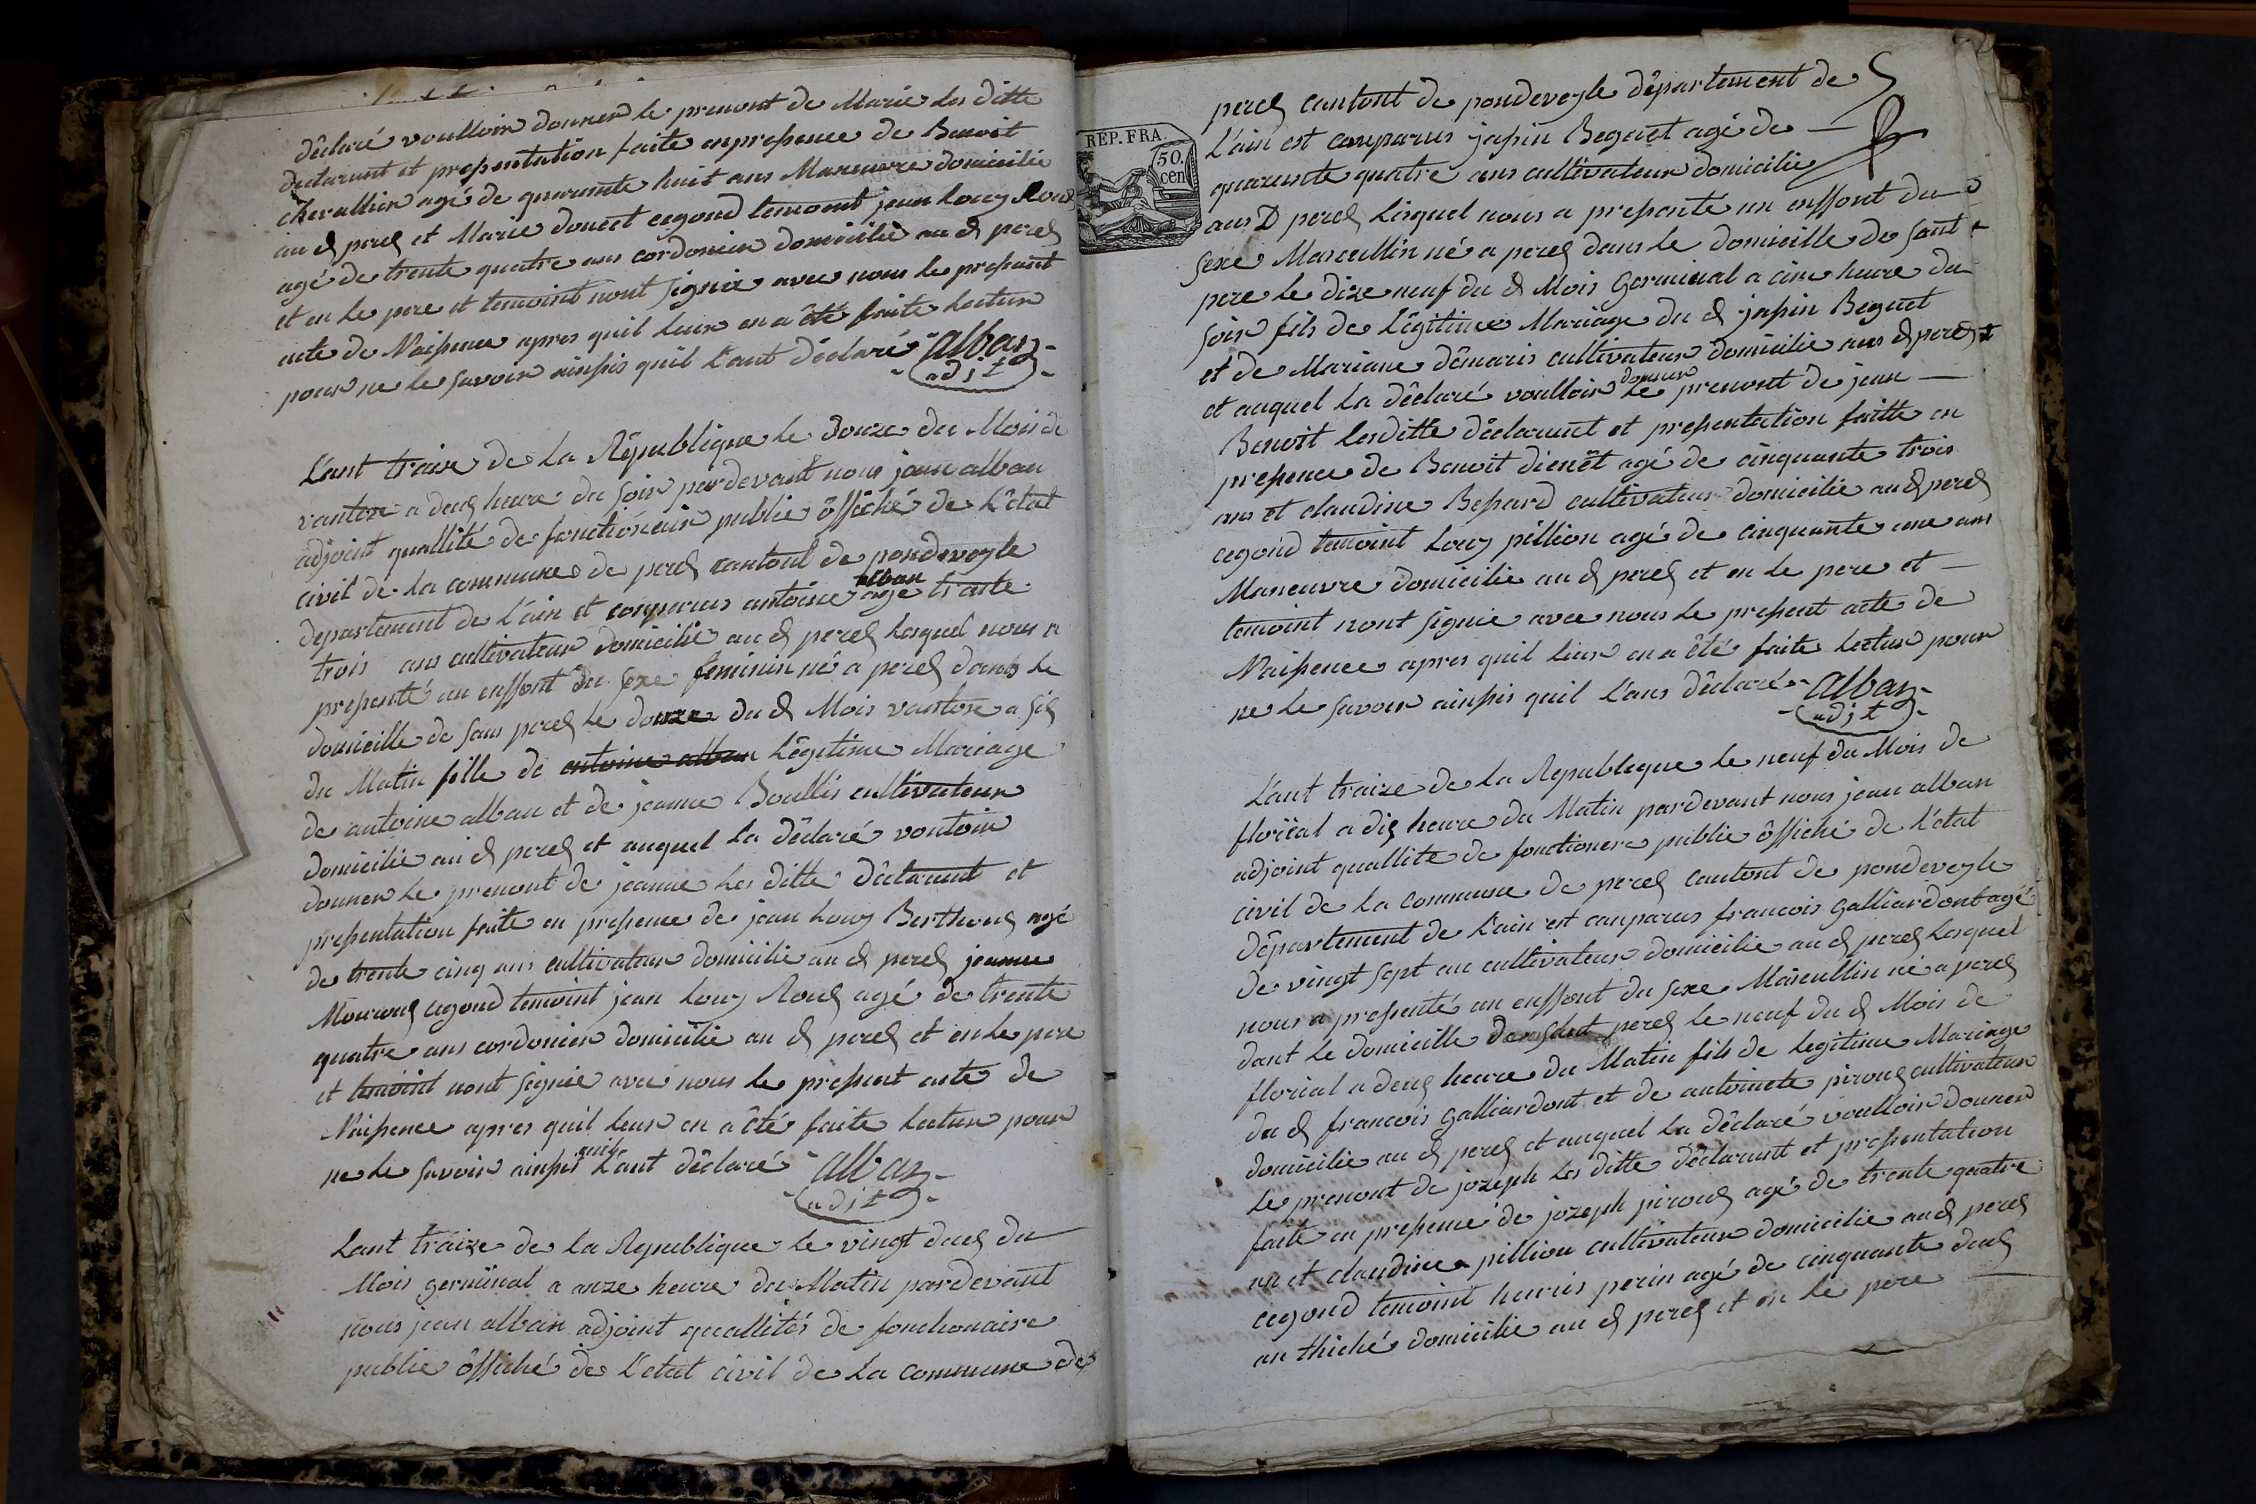 déclaré voulloir donner le prenont de Marie les ditte
declarant et presentation faite en presence de Benoit
chevallier agé de quarante huit ans Maneuvre domicilie
au d perex et Marie douest cegond temoint jean Louy Roux
agé de trente quatre ans cordonier domicilie au d perex
et en le pere et temoint nont signie avec nous le present
acte de Naissence apres quil leur en a été faite lectur
pour ne le savoir ainssis quil L'ant déclaré alban
adjt
L'ant traize de La République le douze du Mois de
vantose a deux heure du soir pardevant nous jean alban
adjoint quallité de fonctionair public öffiché de L'état
civil de la commune de perex cantont de pondeveyle
departement de L'ain et conparus antoine alban agé trante
trois ans cultivateur domicilie au d perex lesquel nous a
presenté un enffont du sexe feminin né a perex dans le
domicille de sans perex le douze du d Mois vantose a six
du Matin fille de antoine alban Légitime Mariage
de antoine alban et de jeanne Boullis cultivateur
domicilie au d perex et auquel La déclaré vouloir
donner le prenont de jeanne les ditte déclarant et
presentation faite en presence de jean Louy Berthoux agé
de trente cinq ans cultivateur domicilie au d perex jeanne
Mouroux cegond temoint jean Louy Roux agé de trente
quatre ans cordonier domicilie au d perex et en le pere
et temoint nont signie avec nous le present acte de
Naissence apres quil leur en a été faite lectur pour
ne le savoir ainssis quil L'ant déclaré alban
adjt
Lant traize de la Republique le vingt deux du
Mois germinal a onze heure du Matin pardevant
nous jean alban adjoint quallités de fonctionaire
public öffiché de L'etat civil de la commune de
REP. FRA.
50.
cen
perex cantont de pondeveyle département de
L'ain est comparus japin Beguet agé de
quarante quatre ans cultivateur domicilie
aus D perex Lesquel nous a presenté un enffont du
sexe Mascullin né a perex dans le domicille de sont
pere le dize neuf du d Mois Germinal a cinc heure du
soir fils de Légitime Mariage du d japin Beguet
et de Mariane démaris cultivateur domicilie aus d perex
et auquel La déclaré voulloir donner le prenont de jean
Benoit les ditte déclarant et presentation faitte en
presence de Benoit dienêt agé de cinquante trois
ans et claudine Bessard cultivateur domicilie au d perex
cegond temoint Louy pillion agé de cinquante une ans
Maneuvre domicilie au d perex et en le pere et
temoint nont signie avec nous le present acte de
Naissence apres quil leur en a été faite lectur pour
ne le savoir ainssis quil L'ans déclaré alban
adjt
L'ant traize de la Republeque le neuf du Mois de
floréal a dix heure du Matin pardevant nous jean alban
adjoint quallite de fonctionere public öffiché de L'etat
civil de la commune de perex cantont de pondeveyle
département de L'ain est conparus francois galliardont agé
de vingt sept an cultivateur domicilie au d perex lesquel
nous a presenté un enffont du sexe Mascullin né a perex
dant le domicille perex le neuf du d Mois de
florial a deux heure du Matin fils de legitime Mariage
du d francois galliardont et de antoinete piroux cultivateur
domicilie au d perex et auquel La déclaré voulloir donner
le prenont de jozeph Les ditte déclarant et presentation
faite en presence de jozeph piroux agé de trente quatre
an et claudine pillion cultivateur domicilie au d perex
cegond temoint henris perin agé de cinquante deux
an thiché domicilie au d perex et en le pere